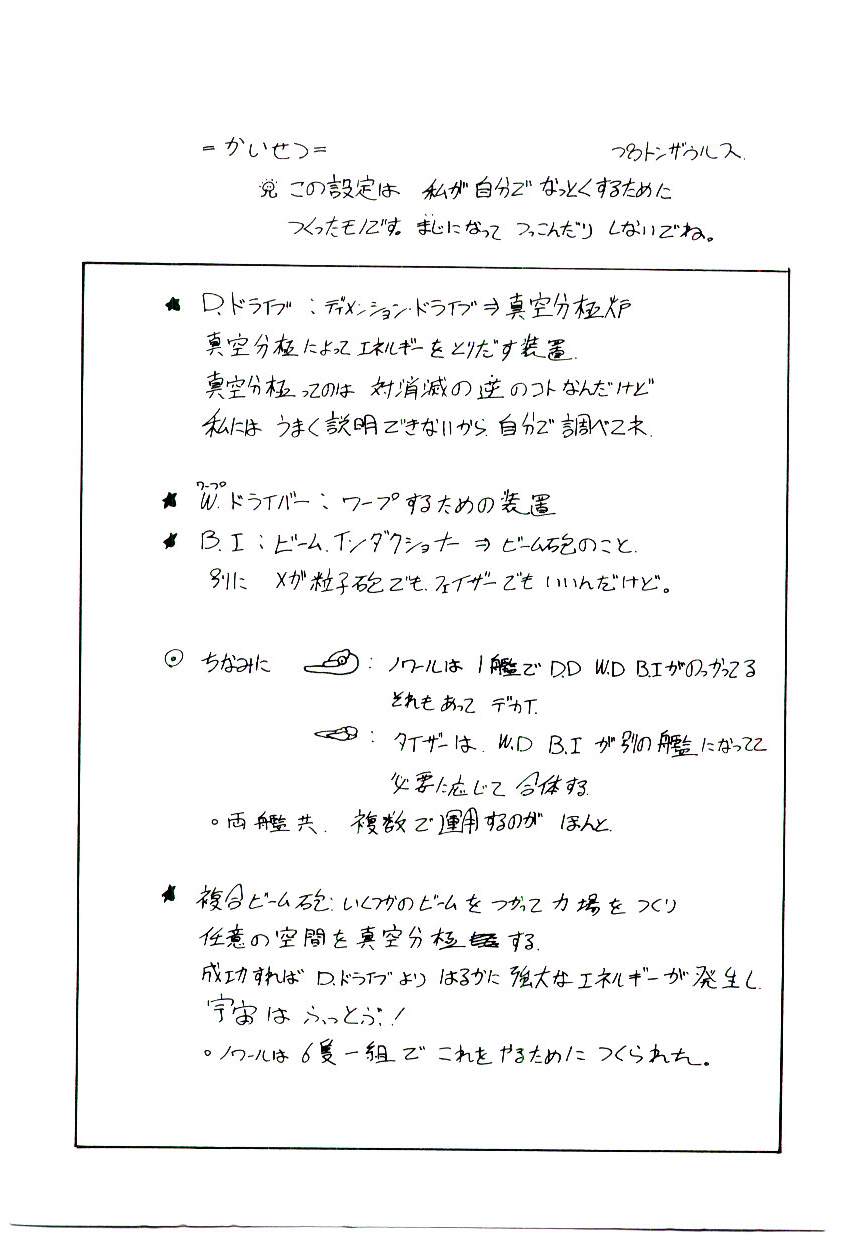 = かいせつ =
つ トンザウルス.
※ この設定は 私が自分で なっとくするために
つくったモノです。まじになって つっこんだり しないでね。
★ D.ドライブ : ディメンション・ドライブ ⇒ 真空分極炉
真空分極によって エネルギーを とりだす 装置.
真空分極ってのは 対消滅の逆のコトなんだけど
私には うまく説明できないから. 自分で調べてネ.
ワープ
★ W.ドライバー : ワープするための装置
★ B.I : ビーム.インダクショナー ⇒ ビーム砲のこと.
別に メガ粒子砲でも.フェイザーでも いいんだけど。
⊙ ちなみに : ノワールは 1艦で D.D W.D B.I がのっかってる
それもあって デカイ.
: タイザーは. W.D B.I が別の艦になってて
必要に応じて 合体する.
○両艦共. 複数で運用するのが ほんと.
★ 複合ビーム砲: いくつかのビームを つかって 力場を つくり
任意の空間を真空分極する.
成功すれば D.ドライブより はるかに強大なエネルギーが発生し.
宇宙は ふっとぶ!
○ノワールは 6隻一組で これをやるために つくられた。